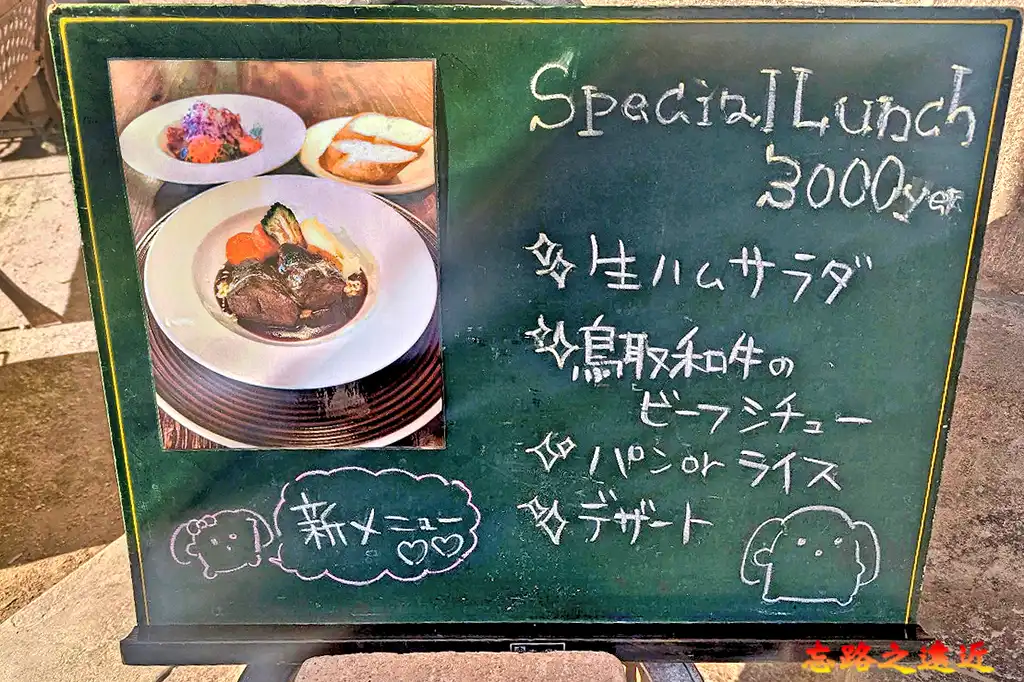 Special Lunch
3000yen
生ハムサラダ
鳥取和牛の
ビーフシチュー
パン or ライス
デザート
新メニュー
忘路之遠近